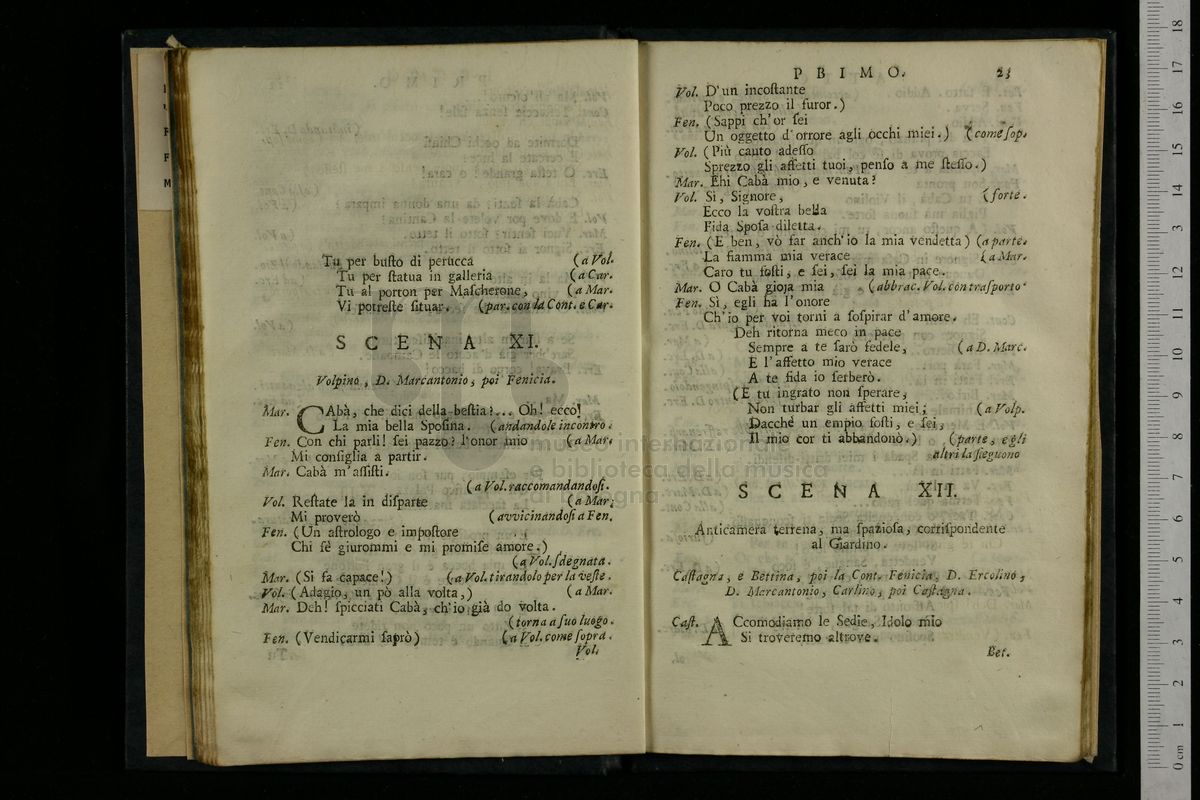 Tu per buſto di perucca (a Vol.
Tu per ſtatua in galleria (a Car.
Tu al porton per Maſcherone, (a Mar.
Vi potreſte ſituar. (par. con la Cont. e Car.
SCENA XI.
Volpino, D. Marcantonio, poi Fenicia.
Mar. CAbà, che dici della beſtia?... Oh! ecco!
La mia bella Spoſina. (andandole incontro.
Fen. Con chi parli! ſei pazzo? l'onor mio (a Mar.
Mi conſiglia a partir.
Mar. Cabà m'aſſiſti.
(a Vol. raccomandandoſi.
Vol. Reſtate la in diſparte (a Mar;
Mi proverò (avvicinandoſi a Fen.
Fen. (Un aſtrologo e impoſtore
Chi fè giurommi e mi promiſe amore.)
(a Vol. ſdegnata.
Mar. (Si fa capace!) (a Vol. tirandolo per la veſte.
Vol. (Adagio, un pò alla volta,) (a Mar.
Mar. Deh! ſpicciati Cabà, ch'io già do volta.
(torna a ſuo luogo.
Fen. (Vendicarmi ſaprò) (a Vol. come ſopra.
Vol.
PBIMO. 23
Vol. D'un incoſtante
Poco prezzo il furor.)
Fen. (Sappi ch'or ſei
Un oggetto d'orrore agli occhi miei.) (come ſop.
Vol. (Più cauto adeſſo
Sprezzo gli affetti tuoi, penſo a me ſteſſo.)
Mar. Ehi Cabà mio, e venuta?
Vol. Sì, Signore, (forte.
Ecco la voſtra bella
Fida Spoſa diletta.
Fen. (E ben, vò far anch'io la mia vendetta) (a parte.
La fiamma mia verace (a Mar.
Caro tu foſti, e ſei, ſei la mia pace.
Mar. O Cabà gioja mia (abbrac. Vol. con traſporto
Fen. Sì, egli ha l'onore
Ch'io per voi torni a ſoſpirar d'amore.
Deh ritorna meco in pace
Sempre a te ſarò fedele, (a D. Marc.
E l'affetto mio verace
A te fida io ſerberò.
(E tu ingrato non ſperare,
Non turbar gli affetti miei; (a Volp.
Dacchè un empio foſti, e ſei,
Il mio cor ti abbandonò.) (parte, e gli
altri la ſieguono
SCENA XII.
Anticamera terrena, ma ſpazioſa, corriſpondente
al Giardino.
Caſtagna, e Bettina, poi la Cont. Fenicia, D. Ercolino,
D. Marcantonio, Carlino, poi Caſtagna.
Caſt. ACcomodiamo le Sedie, Idolo mio
Si troveremo altrove.
Bet.
museo internazionale
e biblioteca della musica
di Bologna